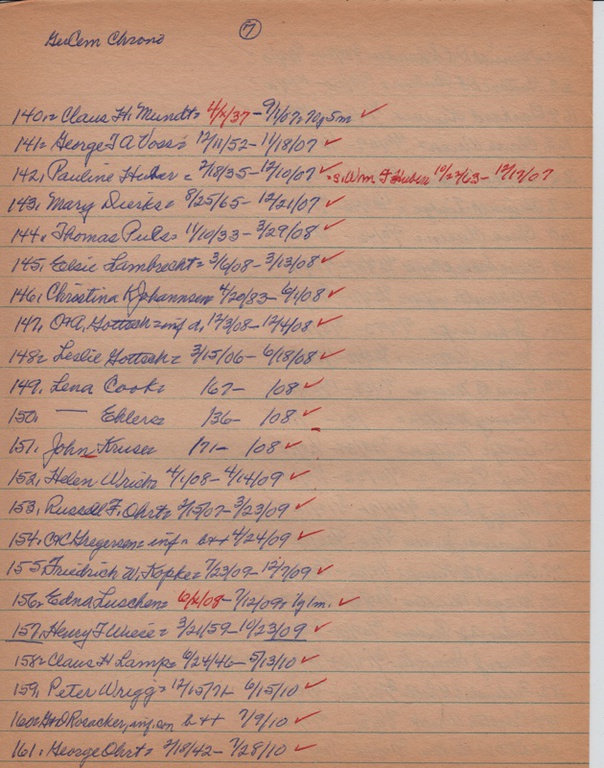 7
GerCem Chrono
140. Claus H. Mundt= 4/x/37 - 9/1/07= 70y5m ✓
141= George J A Voss= 12/11/52 - 11/18/07 ✓
142, Pauline Huber = 2/18/35 - 12/10/07 ✓ Wm F Huber 10/22/63 - 12/17/07
143. Mary Dierks= 8/25/65 - 12/21/07 ✓
144. Thomas Puls= 11/10/33 - 3/29/08 ✓
145. Elsie Lambrecht= 3/6/08 - 3/13/08 ✓
146. Christina K Johannsen 4/20/83 - 6/1/08 ✓
147. O+A, Gottsch=inf d, 12/3/08 - 12/4/08 ✓
148= Leslie Gottsch= 3/15/06 - 6/18/08 ✓
149. Lena Cook= /67 - /08 ✓
150. — Ehlers= /36 - /08 ✓
151. John Kruse= /71 - /08 ✓
152. Helen Wrich= 4/1/08 - 4/14/09 ✓
153. Russell F. Ohrt= 2/15/07 - 3/23/09 ✓
154. C+C Gregersen= inf = b++ 4/24/09 ✓
155 Friedrich W. Kopke= 7/23/09 - 12/7/09 ✓
156= Edna Luschen= 6/x/08 - 7/12/09= 1y1m. ✓
157. Henry F Wiese= 3/21/59 - 10/23/09 ✓
158= Claus H Lamp= 6/24/46 - 5/13/10 ✓
159. Peter Wrigg= 12/15/71 - 6/15/10 ✓
160= G+D Rosacker, inf. son b++ 7/9/10 ✓
161. George Ohrt= 2/18/42 - 7/28/10 ✓